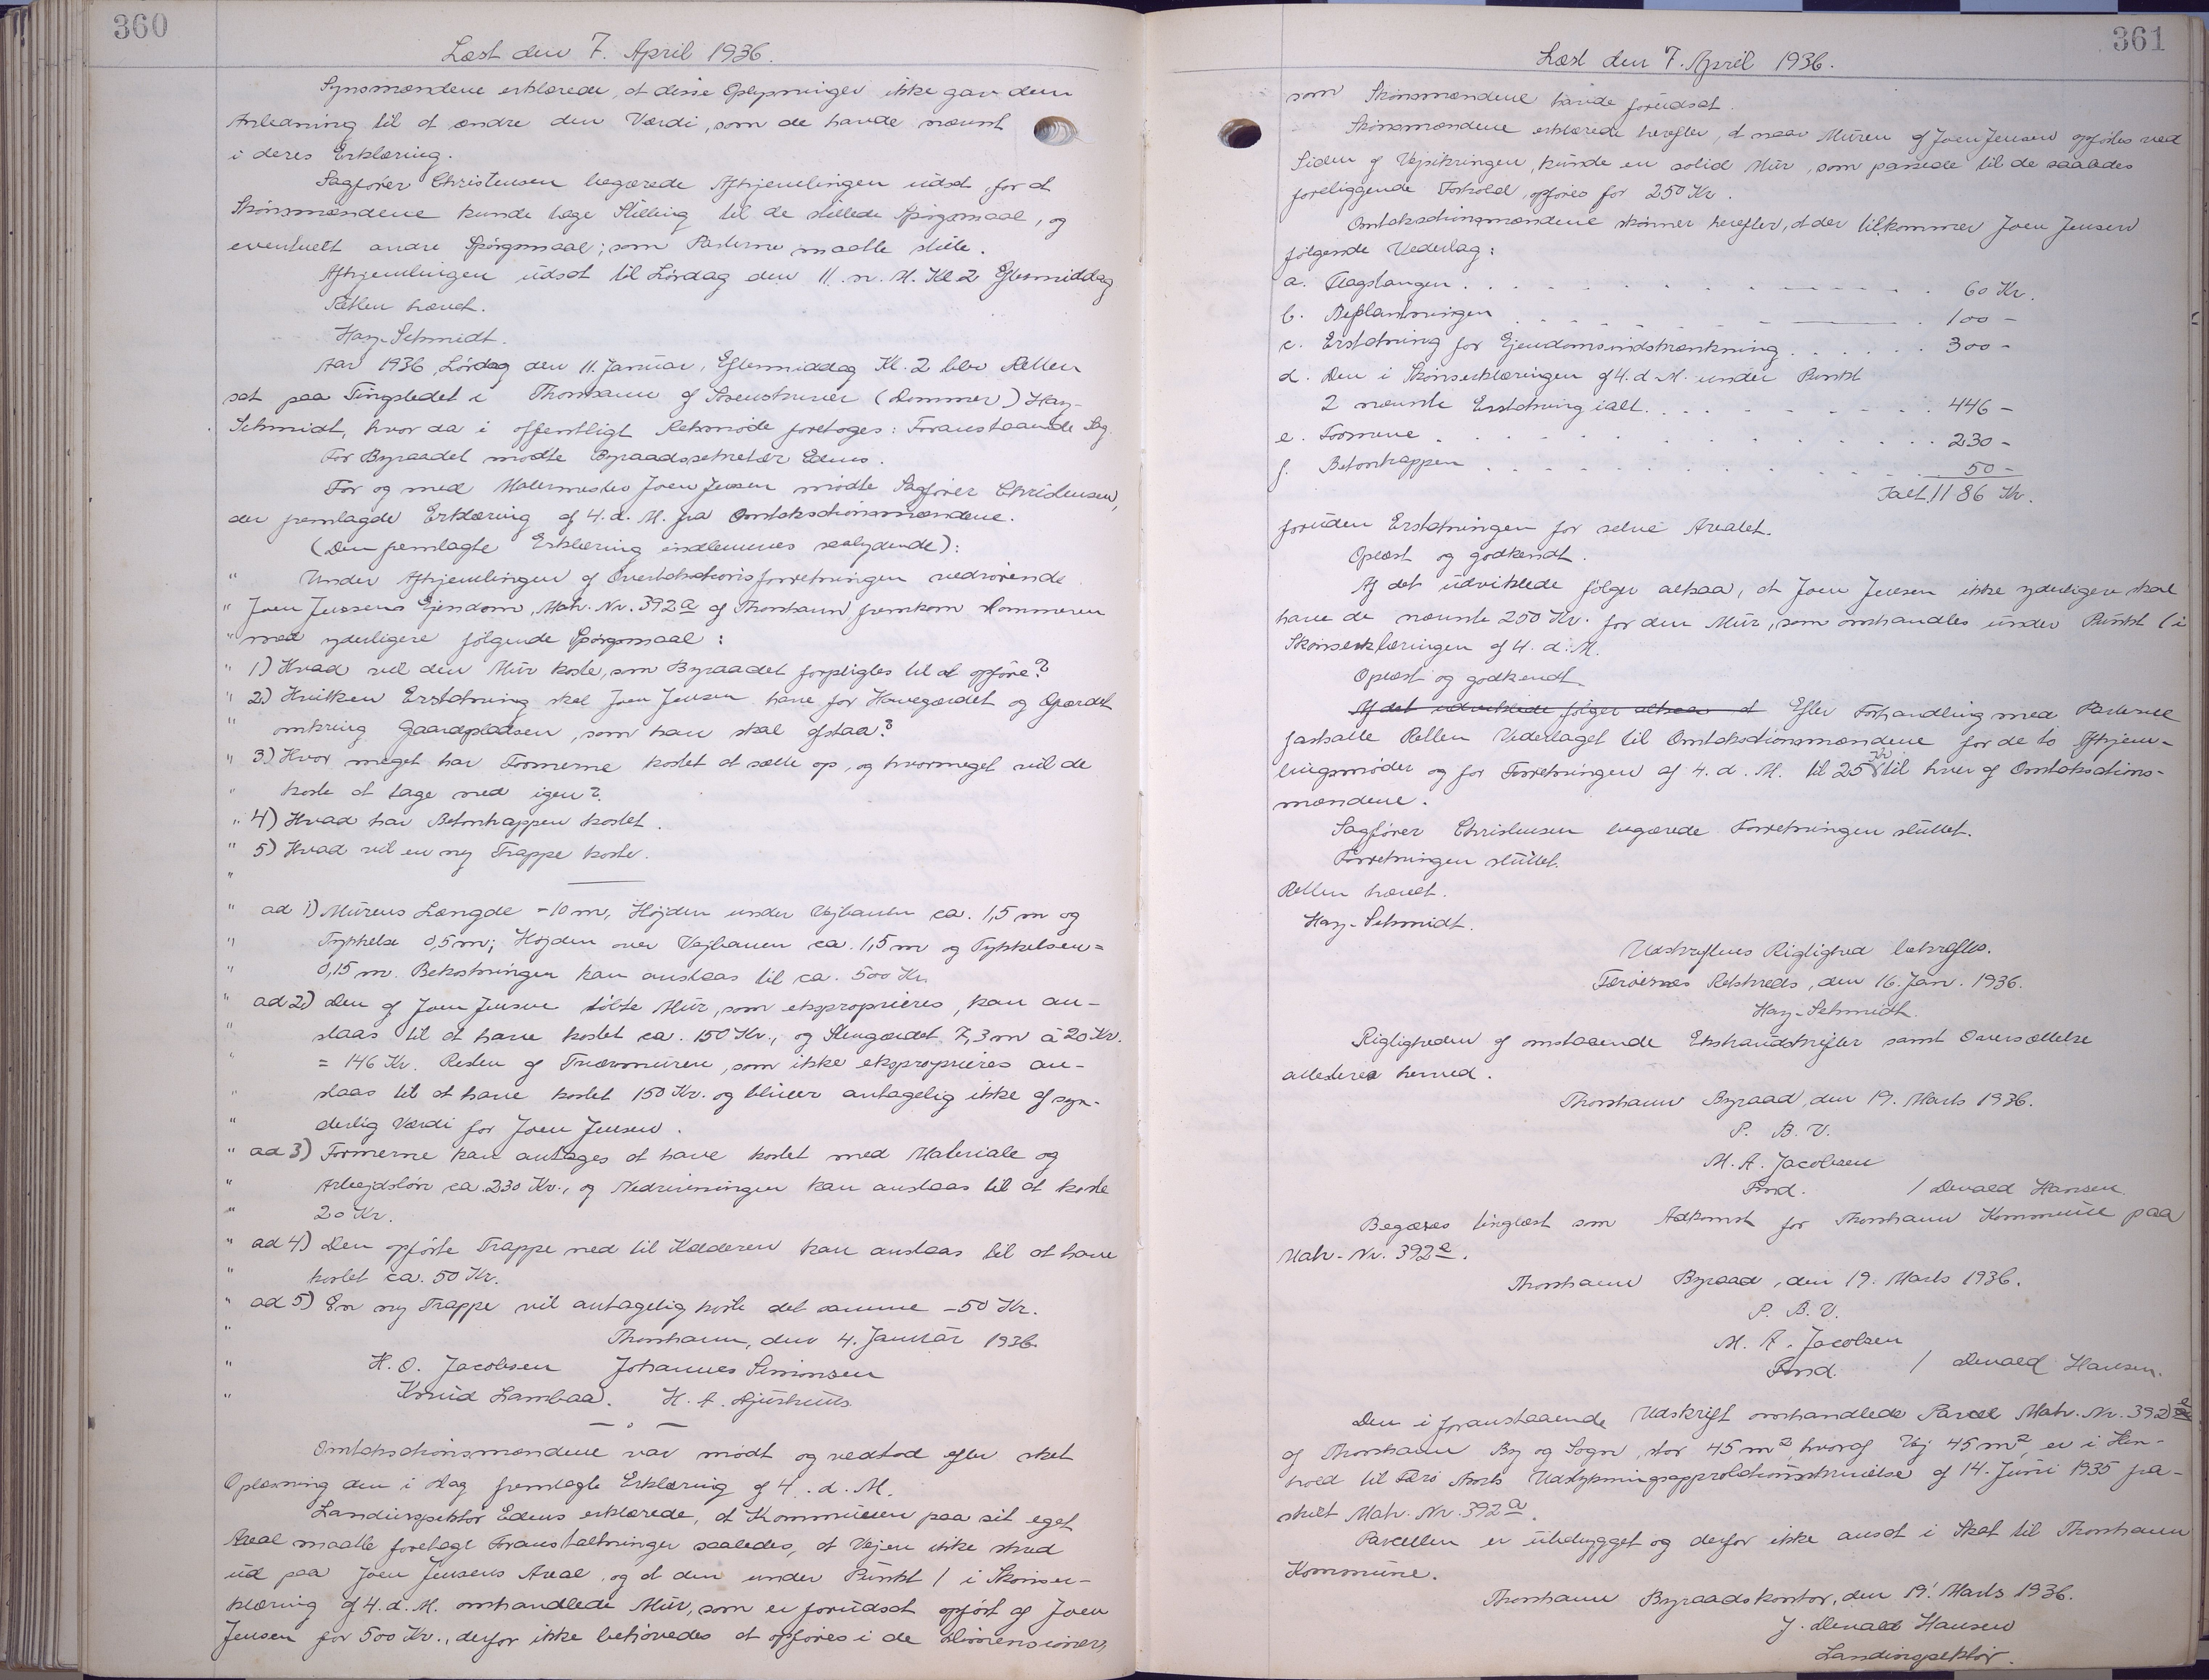 360
Læst den 7. April 1936.
Synsmændene erklærede, at disse Oplysninger ikke gav dem
Anledning til at ændre den Værdi, som de havde nævnt
i deres Erklæring.
Sagfører Christensen begærede Afhjemlingen udsat, for at
Skønsmændene kunde tage Stilling til de stillede Spørgsmaal, og
eventuelt andre Spørgsmaal; som Parterne maatte stille.
Afhjemlingen udsat til Lørdag den 11. n. M. Kl 2 Eftermiddag
Retten hævet.
Hay-Schmidt.
Aar 1936, Lørdag den 11. Januar, Eftermiddag Kl. 2 blev Retten
sat paa Tingstedet i Thorshavn af Sorenskriver (Dommer) Hay-
Schmidt, hvor da i offentligt Retsmøde foretoges: Foranstaaende Sag.
For Byraadet mødte Byraadssekretær Edens.
For og med Malermester Joen Jensen mødte Sagfører Christensen,
der fremlagde Erklæring af 4. d. M. fra Omtaksationsmændene.
(Den fremlagte Erklæring indlemmes saalydende):
" Under Afhjemlingen af Overtaksationsforretningen vedrørende
" Joen Jensens Ejendom, Matr. Nr. 392 a af Thorshavn fremkom Dommeren
" med yderligere følgende Spørgsmaal:
" 1) Hvad vil den Mur koste, som Byraadet forpligtes til at opføre?
" 2) Hvilken Erstatning skal Joen Jensen have for Havegærdet og Gærdet
" omkring Gaardpladsen, som han skal afstaa?
" 3) Hvor meget har Formerne kostet at sætte op, og hvormeget vil de
" koste at tage ned igen?
" 4) Hvad har Betontrappen kostet.
" 5) Hvad vil en ny Trappe koste.
"
" ad 1) Murens Længde - 10 m, Højden under Vejbanen ca. 1,5 m og
" Tykkelse 0,5 m; Højden over Vejbanen ca. 1,5 m og Tykkelsen =
" 0,15 m. Bekostningen kan anslaas til ca. 500 Kr.
" ad 2) Den af Joen Jensen støbte Mur, som eksproprieres, kan an-
" slaas til at have kostet ca. 150 Kr., og Stengærdet 7,3 m à 20 Kr.
" = 146 Kr. Resten af Tværmuren, som ikke eksproprieres an-
" slaas til at have kostet 150 Kr. og bliver antagelig ikke af syn-
" derlig Værdi for Joen Jensen.
" ad 3) Formerne kan antages at have kostet med Materiale og
" Arbejdsløn ca. 230 Kr., og Nedrivningen kan anslaas til at koste
" 20 Kr.
" ad 4) Den opførte Trappe ned til Kælderen kan anslaas til at have
" kostet ca. 50 Kr.
" ad 5) En ny Trappe vil antagelig koste det samme - 50 Kr.
" Thorshavn, den 4. Januar 1936.
" H. O. Jacobsen Johannes Simonsen
" Knud Lambaa. H. A.
Omtaksationsmændene var mødt og vedtod efter sket
Oplæsning den i Dag fremlagte Erklæring af 4. d. M.
Landinspektør Edens erklærede, at Kommunen paa sit eget
Areal maatte foretage Foranstaltninger saaledes, at Vejen ikke skred
ud paa Joen Jensens Areal, og at den under Punkt 1 i Skønser-
klæring af 4. d. M. omhandlede Mur, som er forudsat opført af Joen
Jensen for 500 Kr., derfor ikke behøvedes at opføres i de Dimensioner,
361
Læst den 7. April 1936.
som Skønsmændene havde forudsat.
Skønsmændene erklærede herefter, at naar Muren af Joen Jensen opføres ved
Siden af Vejsikringen, kunde en solid Mur, som passede til de saaledes
foreliggende Forhold, opføres for 250 Kr.
Omtaksationsmændene skønner herefter, at der tilkommer Joen Jensen
følgende Vederlag:
a. Flagstangen . . . . 60 Kr.
b. Beplantningen . . . . 100 -
c. Erstatning for Ejendomsindskrænkning . . . . 300 -
d. Den i Skønserklæringen af 4. d. M. under Punkt
2 nævnte Erstatning ialt . . . . 446 -
e. Formene . . . . 230 -
f. Betontrappen . . . . 50 -
Ialt 1186 Kr.
foruden Erstatningen for selve Arealet.
Oplæst og godkendt.
Af det udviklede følger altsaa, at Joen Jensen ikke yderligere skal
have de nævnte 250 Kr. for den Mur, som omhandles under Punkt 1 i
Skønserklæringen af 4. d. M.
Oplæst og godkendt.
Af det udviklede følger altsaa at Efter Forhandling med Parterne
fastsatte Retten Vederlaget til Omtaksationsmændene for de to Afhjem-
lingsmøder og for Forretningen af 4. d. M. til 25 Kr til hver af Omtaksations-
mændene.
Sagfører Christensen begærede Forretningen sluttet.
Forretningen sluttet.
Retten hævet.
Hay-Schmidt.
Udskriftens Rigtighed bekræftes.
Færøernes Retskreds, den 16. Jan. 1936.
Hay-Schmidt.
Rigtigheden af omstaaende Ekstraktskrifter samt Oversættelse
attesteres herved.
Thorshavn Byraad, den 19. Marts 1936.
P. B. V.
M. A. Jacobsen
Fmd. / Devald Hansen.
Begæres tinglæst som Adkomst for Thorshavn Kommune paa
Matr. Nr. 392 e.
Thorshavn Byraad, den 19. Marts 1936.
P. B. V.
M. A. Jacobsen
Fmd. / Devald Hansen.
Den i foranstaaende Udskrift omhandlede Parcel Matr. Nr. 392 e
af Thorshavn By og Sogn, stor 45 m², hvoraf Vej 45 m², er i Hen-
hold til Færø Amts Udstykningsapprobationsskrivelse af 14. Juni 1935 fra-
skilt Matr. Nr. 392 a.
Parcellen er ubebygget og derfor ikke ansat i Skat til Thorshavn
Kommune.
Thorshavn Byraadskontor, den 19. Marts 1936.
J. Devald Hansen
Landinspektør.